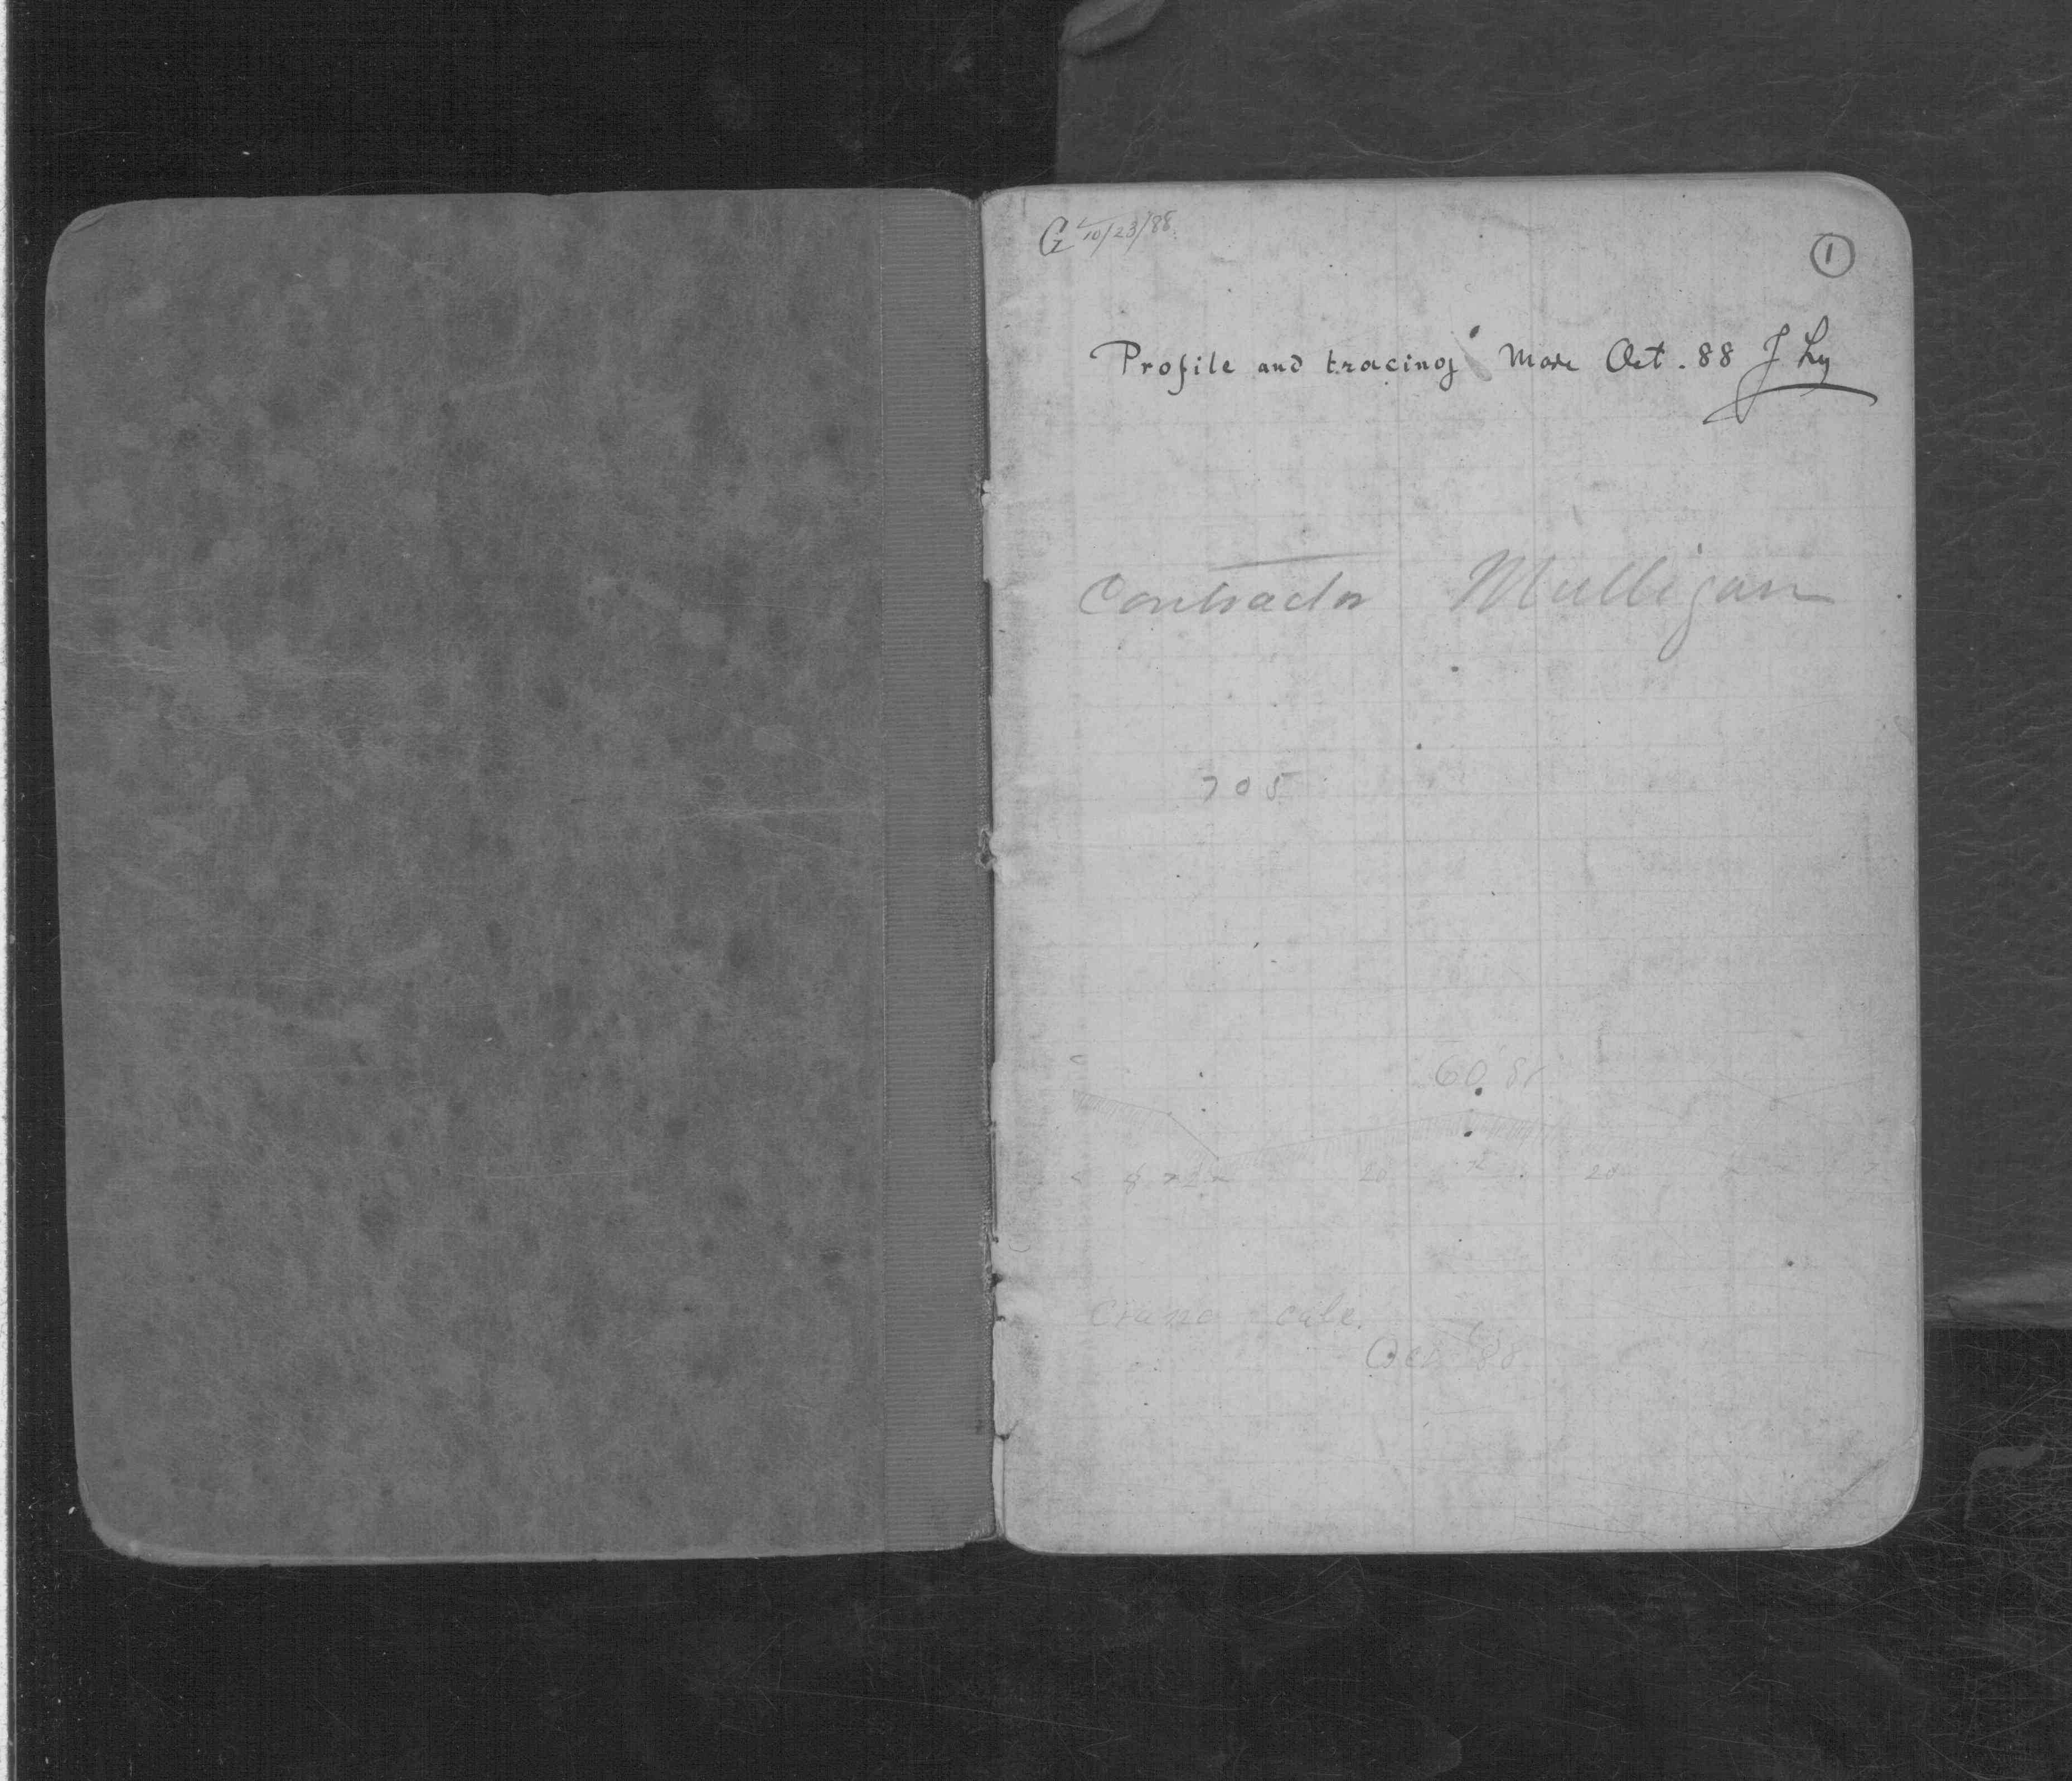 G 10/23/88
1
Profile and tracing Made Oct. 88 J Ly
Contractor Mulligan
705
60' St
20 20
Oct 88